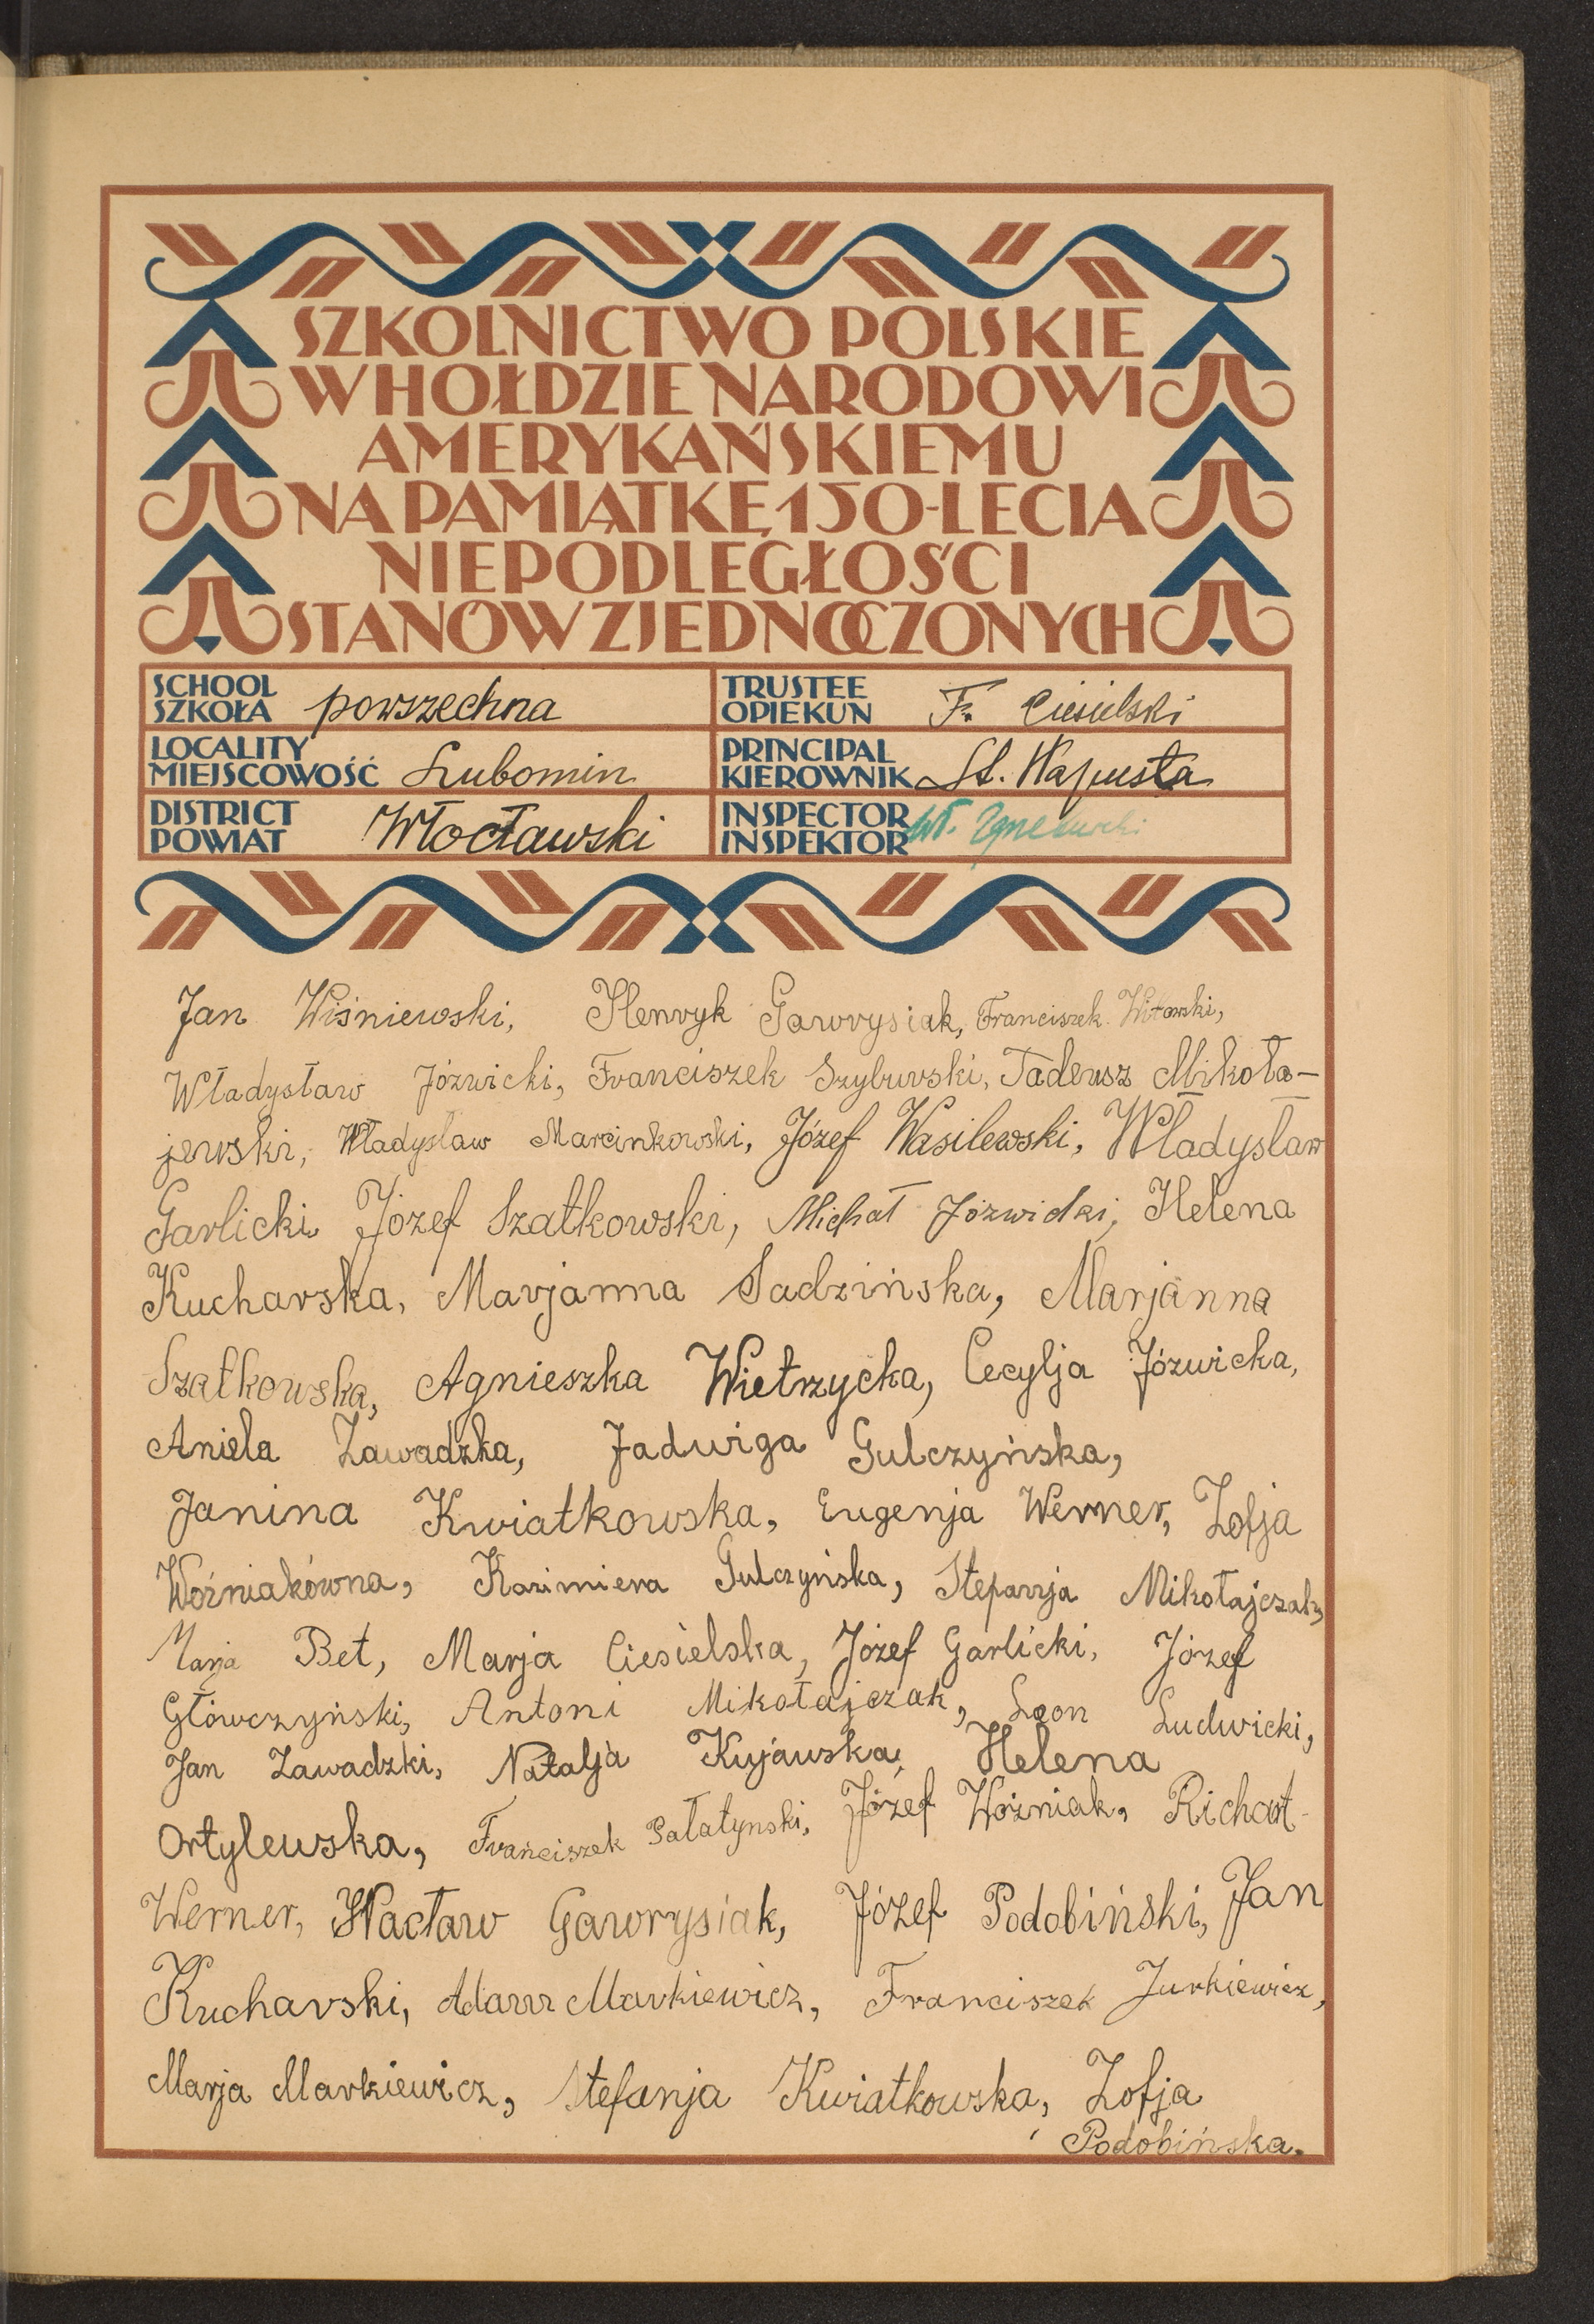 SZKOLNICTWO POLSKIE
W HOŁDZIE NARODOWI
AMERYKAŃSKIEMU
NA PAMIĄTKĘ 150-LECIA
NIEPODLEGŁOŚCI
STANÓW ZJEDNOCZONYCH
SCHOOL
SZKOŁA powszechna
TRUSTEE
OPIEKUN Fr. Ciesielski
LOCALITY
MIEJSCOWOŚĆ Lubomin
PRINCIPAL
KIEROWNIK St. Kapusta
DISTRICT
POWIAT Włocławski
INSPECTOR
INSPEKTOR
Jan Wiśniewski, Henryk Gawrysiak, Franciszek Witowski,
Władysław Józwicki, Franciszek Szyburski, Tadeusz Mikoła-
jewski, Władysław Marcinkowski, Józef Wasilewski, Władysław
Garlicki Józef Szatkowski, Michał Józwicki, Helena
Kucharska, Marjanna Sadzińska, Marjanna
Szatkowska, Agnieszka Wietrzycka, Cecylja Józwicka,
Aniela Zawadzka, Jadwiga Gulczyńska,
Janina Kwiatkowska, Eugenja Werner, Zofja
Woźniakówna, Kazimiera Gulczyńska, Stefanja Mikołajczak,
Marja Bet, Marja Ciesielska, Józef Garlicki, Józef
Główczyński, Antoni Mikołajczak, Leon Ludwicki,
Jan Zawadzki, Natalja Kujawska, Helena
Ortylewska, Franciszek Pałatynski, Józef Woźniak, Richart
Werner, Wacław Gawrysiak, Józef Podobiński, Jan
Kucharski, Adam Markiewicz, Franciszek Jurkiewicz,
Marja Markiewicz, Stefanja Kwiatkowska, Zofja
Podobińska.